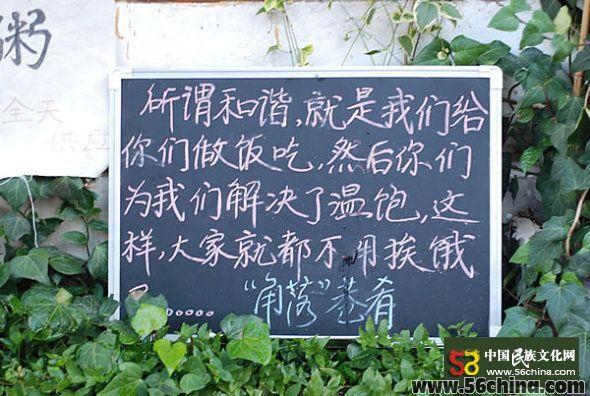 粥
全天
供应
所谓和谐,就是我们给
你们做饭吃,然后你们
为我们解决了温饱,这
样,大家就都不用挨饿
了......
"角落"巷肴
58 中国民族文化网
www.56china.com
www.56china.com